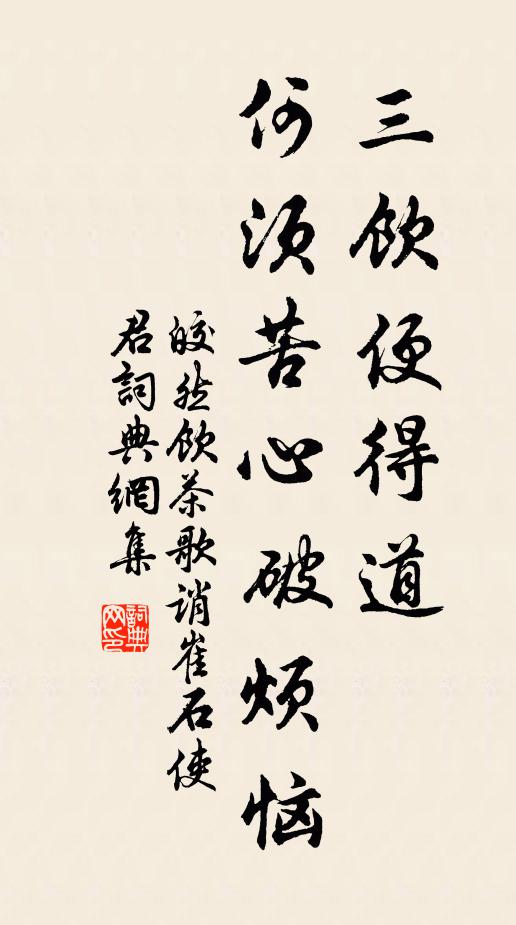 三饮便得道
何须苦心破烦恼
皎然饮茶歌诮崔石使
君詞典網集
詞典
网印